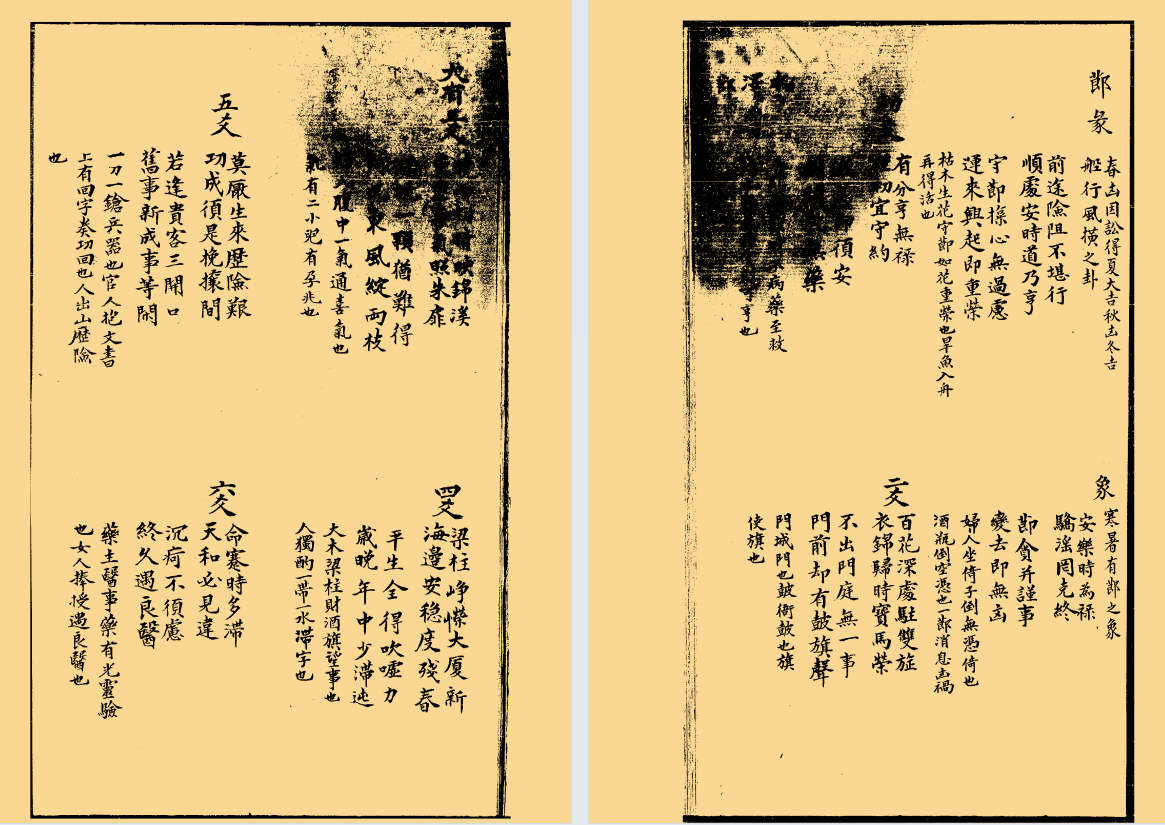 節彖
春凶因訟得夏大吉秋凶冬吉
船行風橫之卦
前途險阻不堪行
順處安時道乃亨
守節操心無過慮
運來興起即重榮
枯木生花守節如花重榮也旱魚入舟
再得活也
有分亨無祿
初宜守約
須安
藥
病藥至救
亨也
象
寒暑有節之象
安樂時為祿
驕滛罔克終
節貪并謹事
變去即無凶
婦人坐倚子倒無憑倚也
酒瓶倒空憑也一節消息凶禍
二爻
百花深處駐雙旌
衣錦歸時寶馬榮
不出門庭無一事
門前却有鼓旗聲
門城門也鼓衙鼓也旗
使旗也
九有三爻
映錦溪
氣照朱扉
一顆猶難得
東風綻兩枝
腹中一氣通喜氣也
有二小児有孕兆也
四爻
梁柱崢嶸大厦新
海邊安穩度殘春
平生全得吹噓力
歲晚年中少滯迍
大木梁柱財酒旗望事也
人獨酌一帶一水滯字也
五爻
莫厭生來歷險艱
功成須是挽據間
若逢貴客三開口
舊事新成事等閑
一刀一鎗兵器也官人抱文書
上有回字奏功回也人出山歷險
也
六爻
命蹇時多滯
天和必見違
沉疴不須慮
終久遇良醫
藥主醫事藥有光靈驗
也女人捧授遇良醫也